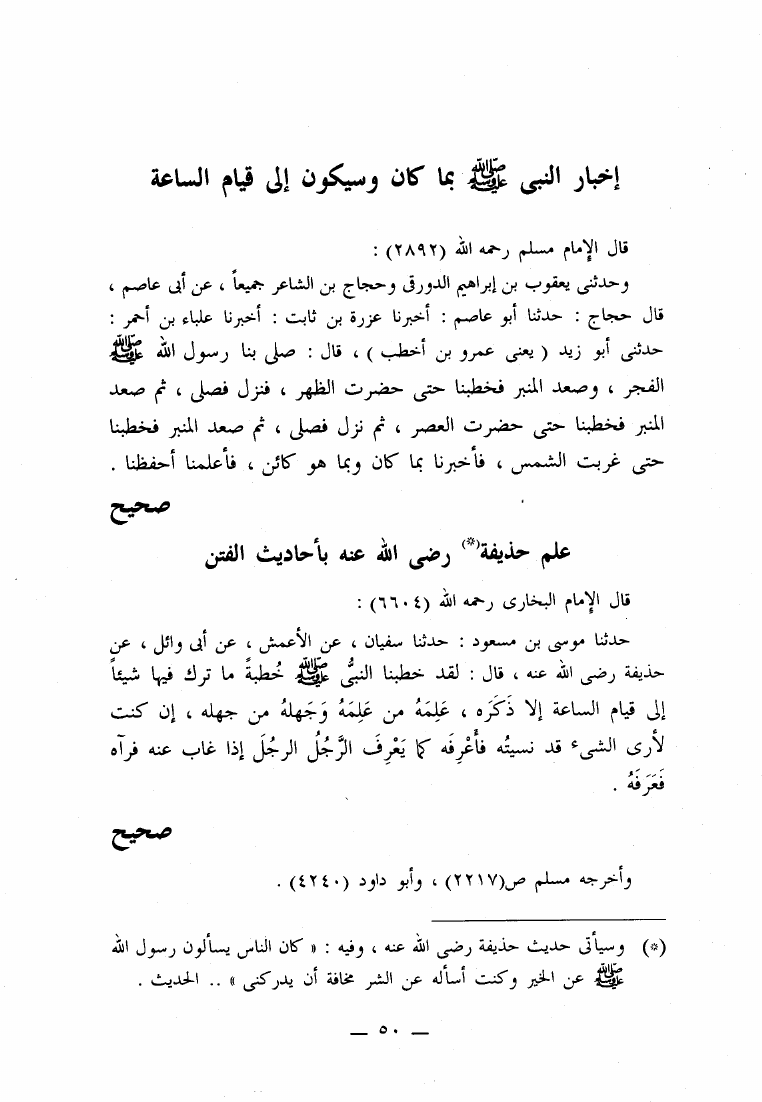 إخبار النبى ﷺ بما كان وسيكون إلى قيام الساعة
قال الإمام مسلم رحمه الله (٢٨٩٢) :
وحدثنى يعقوب بن إبراهيم الدورقى وحجاج بن الشاعر جميعاً ، عن أبى عاصم ،
قال حجاج : حدثنا أبو عاصم : أخبرنا عزرة بن ثابت : أخبرنا علباء بن أحمر :
حدثنى أبو زيد ( يعنى عمرو بن أخطب ) ، قال : صلى بنا رسول الله ﷺ
الفجر ، وصعد المنبر فخطبنا حتى حضرت الظهر ، فنزل فصلى ، ثم صعد
المنبر فخطبنا حتى حضرت العصر ، ثم نزل فصلى ، ثم صعد المنبر فخطبنا
حتى غربت الشمس ، فأخبرنا بما كان وبما هو كائن ، فأعلمنا أحفظنا .
صحيح
علم حذيفة(*) رضى الله عنه بأحاديث الفتن
قال الإمام البخارى رحمه الله (٦٦٠٤) :
حدثنا موسى بن مسعود : حدثنا سفيان ، عن الأعمش ، عن أبى وائل ، عن
حذيفة رضى الله عنه ، قال : لقد خطبنا النبىُّ ﷺ خُطبةً ما ترك فيها شيئاً
إلى قيام الساعة إلا ذَكَره ، عَلِمَهُ من عَلِمَهُ وَجَهلهُ من جهله ، إن كنت
لأرى الشىء قد نسيتُه فأَعْرِفَه كما يَعْرِفَ الرَّجُلُ الرجُلَ إذا غاب عنه فرآه
فَعَرَفَهُ .
صحيح
وأخرجه مسلم ص(٢٢١٧) ، وأبو داود (٤٢٤٠) .
(*) وسيأتى حديث حذيفة رضى الله عنه ، وفيه : « كان الناس يسألون رسول الله
ﷺ عن الخير وكنت أسأله عن الشر مخافة أن يدركنى » .. الحديث .
— ٥٠ —